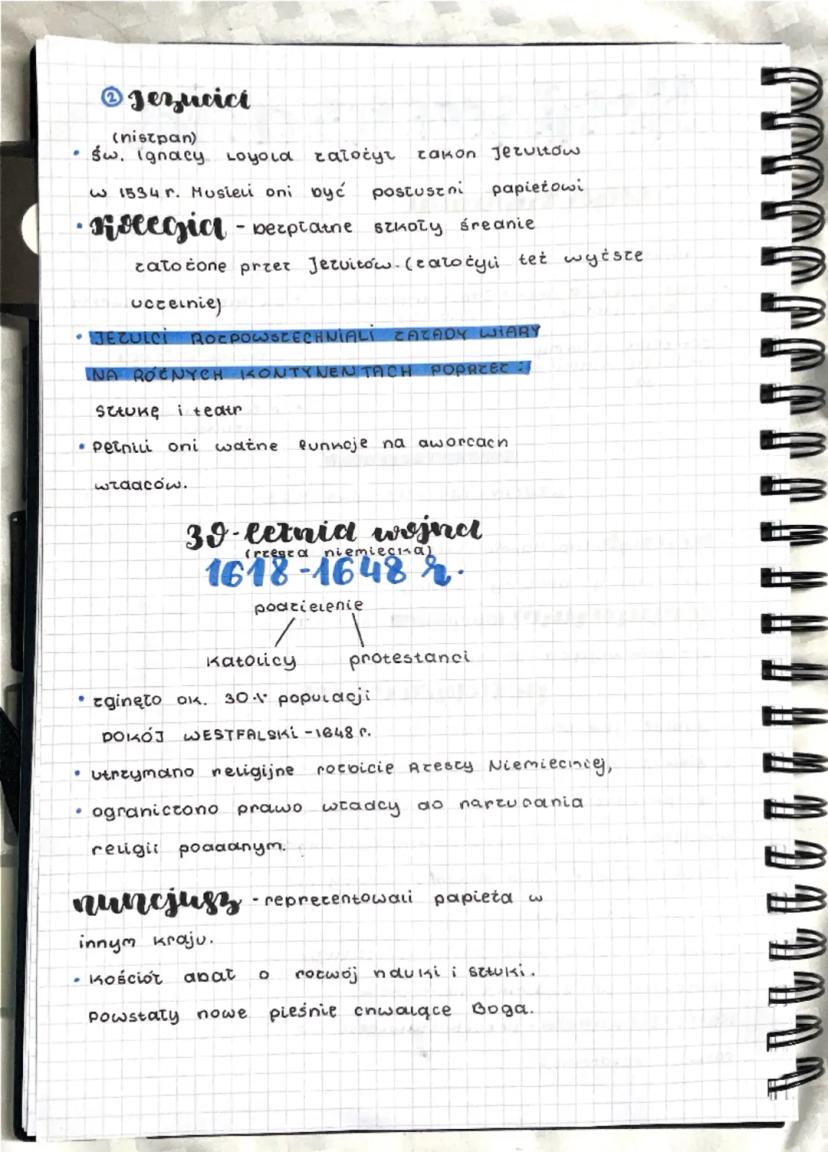 ② Jezuici
(hiszpan)
• św. Ignacy Loyola założył zakon Jezuitów
w 1534 r. Musieli oni być posłuszni papieżowi
• Kolegia - bezpłatne szkoły średnie
założone przez Jezuitów. (założyli też wyższe
uczelnie)
• JEZUICI ROZPOWSZECHNIALI ZASADY WIARY
NA RÓŻNYCH KONTYNENTACH POPRZEZ :
sztukę i teatr
• pełnili oni ważne funkcje na dworcach
władców.
30-letnia wojna
(rzesza niemiecka)
1618-1648 r.
podzielenie
katolicy protestanci
• zginęło ok. 30% populacji
POKÓJ WESTFALSKI - 1648 r.
• utrzymano religijne rozbicie Rzeszy Niemieckiej,
• ograniczono prawo władcy do narzucania
religii poddanym.
nuncjusz - reprezentowali papieża w
innym kraju.
• Kościół dbał o rozwój nauki i sztuki.
Powstały nowe pieśnie chwalące Boga.